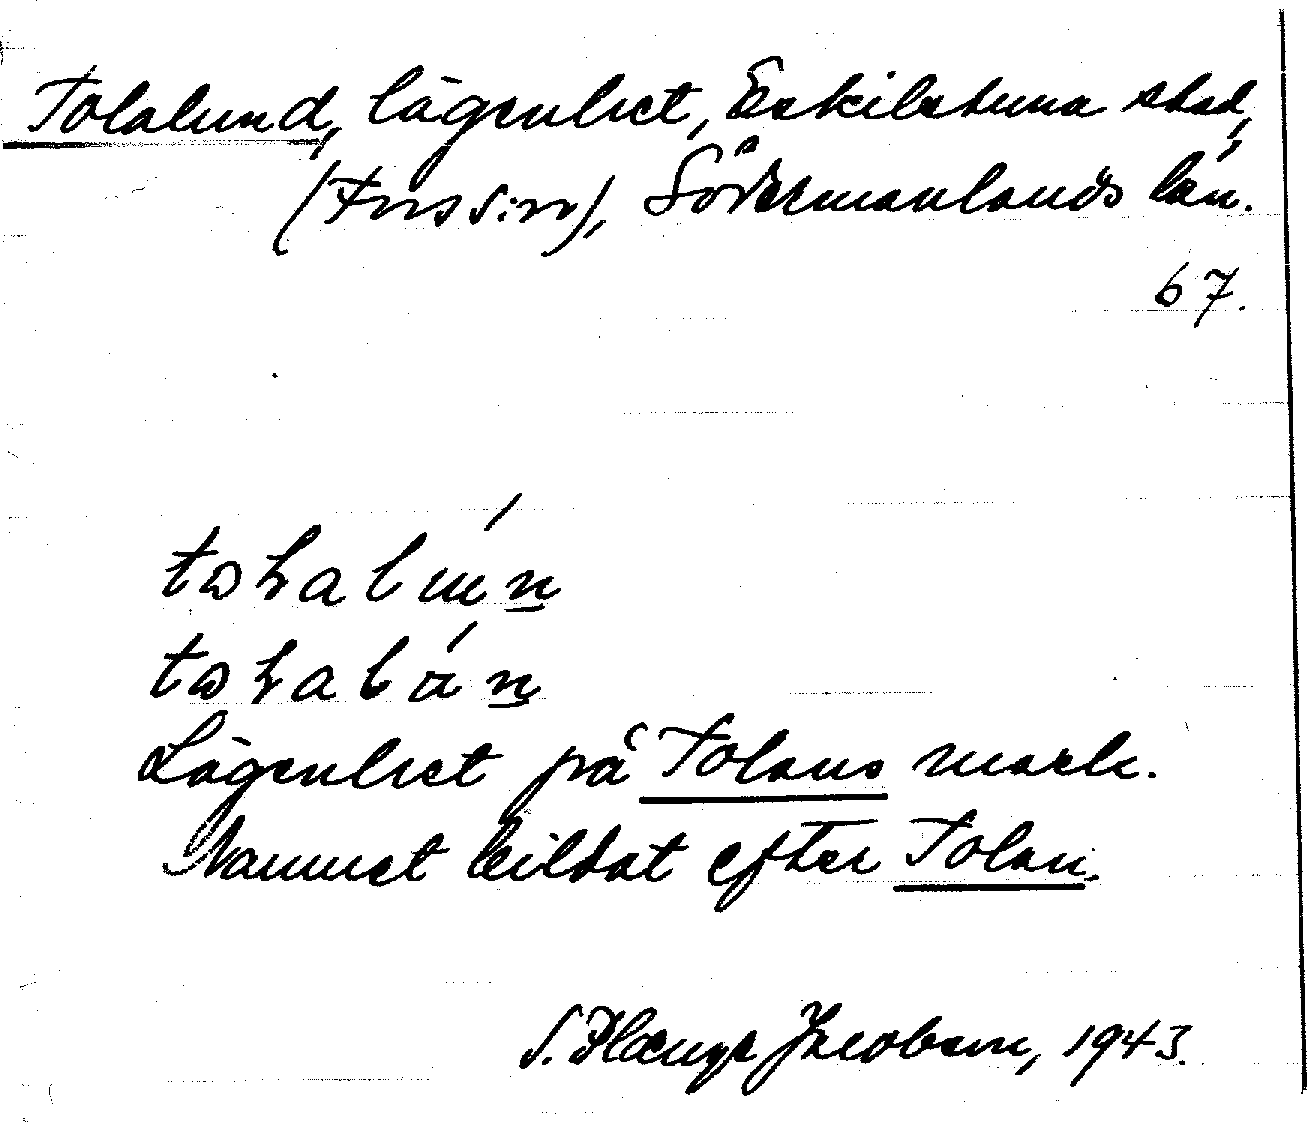 Tolalund, lägenhet, Eskilstuna stad,
(Fors s:n), Södermanlands län.
67.
Lägenhet på Tolans mark.
Namnet bildat efter Tolan.
S. Plænge Jacobson, 1943.